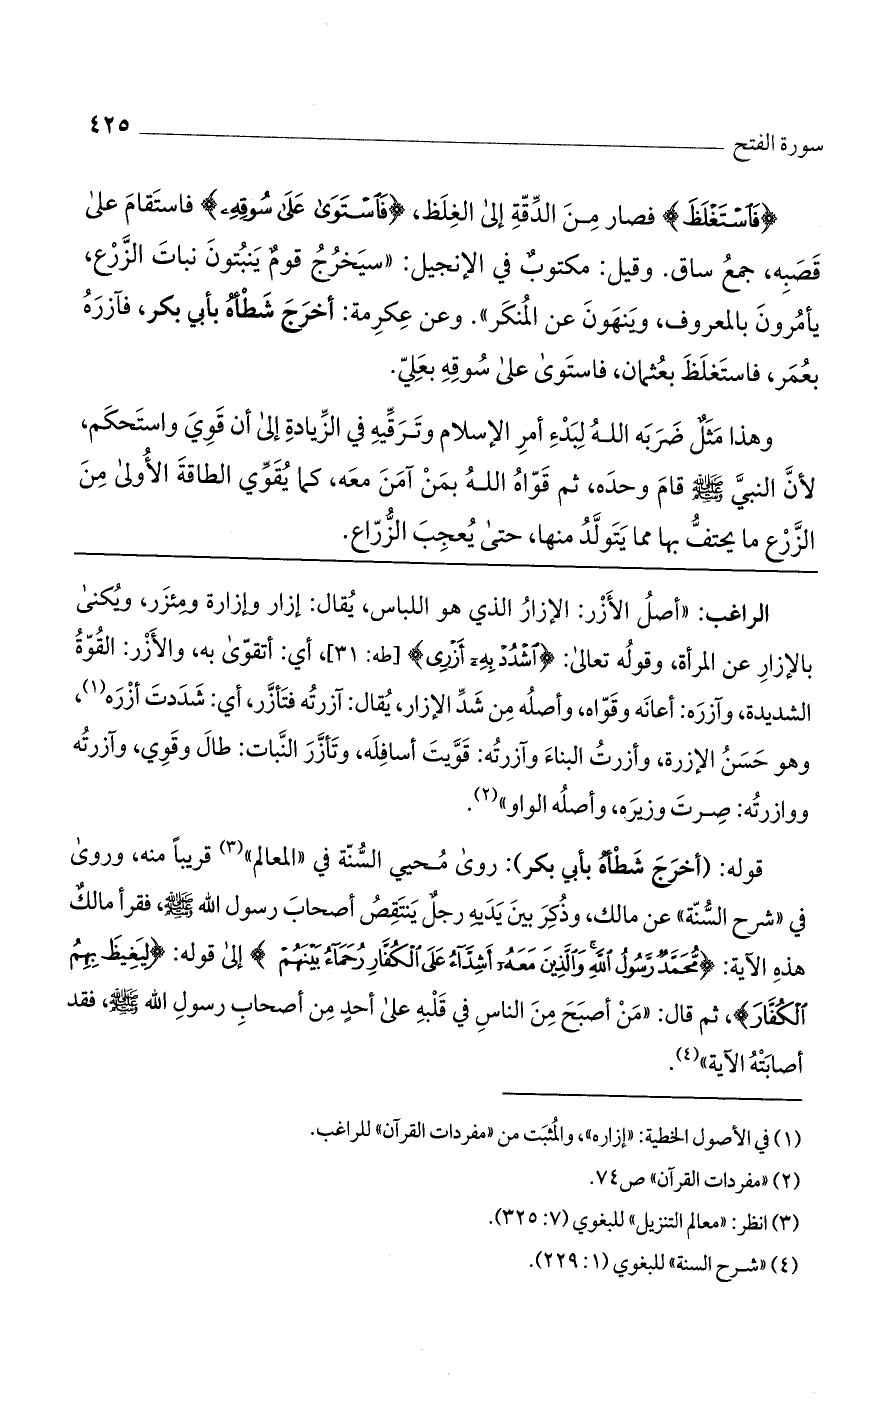 سورة الفتح ٤٢٥
﴿فَٱسْتَغْلَظَ﴾ فصار مِنَ الدِّقّةِ إلىٰ الغِلَظ، ﴿فَٱسْتَوَىٰ عَلَىٰ سُوقِهِۦ﴾ فاستَقامَ علىٰ
قَصَبِه، جمعُ ساق. وقيل: مكتوبٌ في الإنجيل: «سيَخرُجُ قومٌ يَنبُتونَ نباتَ الزَّرْع،
يأمُرونَ بالمعروف، ويَنهَونَ عن المُنكَر». وعن عِكرِمة: أخرَجَ شَطْأهُ بأبي بكر، فآزرَهُ
بعُمَر، فاستَغلَظَ بعُثمان، فاستَوىٰ علىٰ سُوقِهِ بعَلِيّ.
وهذا مَثَلٌ ضَرَبَه اللهُ لِبَدْءِ أمرِ الإسلام وتَرَقِّيهِ في الزِّيادةِ إلىٰ أن قَوِيَ واستَحكَم،
لأنَّ النبيَّ ﷺ قامَ وحدَه، ثم قَوّاهُ اللهُ بمَنْ آمَنَ معَه، كما يُقَوِّي الطاقةَ الأُولىٰ مِنَ
الزَّرْع ما يحتفُّ بها مما يَتَولَّدُ منها، حتىٰ يُعجِبَ الزُّرّاع.
الراغب: «أصلُ الأَزْر: الإزارُ الذي هو اللباس، يُقال: إزار وإزارة ومِئزَر، ويُكنىٰ
بالإزارِ عن المرأة، وقولُه تعالىٰ: ﴿ٱشْدُدْ بِهِۦٓ أَزْرِى﴾ [طه: ٣١]، أي: أتقوّىٰ به، والأَزْر: القُوّةُ
الشديدة، وآزرَه: أعانَه وقَوّاه، وأصلُه مِن شَدِّ الإزار، يُقال: آزرتُه فتَأزَّر، أي: شَدَدتَ أزْرَه(١)،
وهو حَسَنُ الإزرة، وأزرتُ البناءَ وآزرتُه: قَوَّيتَ أسافِلَه، وتَأزَّرَ النَّبات: طالَ وقَوِي، وآزرتُه
ووازرتُه: صِرتَ وزيرَه، وأصلُه الواو»(٢).
قوله: (أخرَجَ شَطْأهُ بأبي بكر): روىٰ مُحيي السُّنّة في «المعالم»(٣) قريباً منه، وروىٰ
في «شرح السُّنّة» عن مالك، وذُكِرَ بينَ يَدَيهِ رجلٌ يَنتَقِصُ أصحابَ رسول الله ﷺ، فقرأ مالكٌ
هذهِ الآية: ﴿مُّحَمَّدٌ رَّسُولُ ٱللَّهِ ۚ وَٱلَّذِينَ مَعَهُۥٓ أَشِدَّآءُ عَلَى ٱلْكُفَّارِ رُحَمَآءُ بَيْنَهُمْ ﴾ إلىٰ قوله: ﴿لِيَغِيظَ بِهِمُ
ٱلْكُفَّارَ﴾، ثم قال: «مَنْ أصبَحَ مِنَ الناسِ في قَلْبِهِ علىٰ أحدٍ مِن أصحابِ رسولِ الله ﷺ، فقد
أصابَتْهُ الآية»(٤).
(١) في الأصول الخطية: «إزاره»، والمُثبَت من «مفردات القرآن» للراغب.
(٢) «مفردات القرآن» ص٧٤.
(٣) انظر: «معالم التنزيل» للبغوي (٧: ٣٢٥).
(٤) «شرح السنة» للبغوي (١: ٢٢٩).